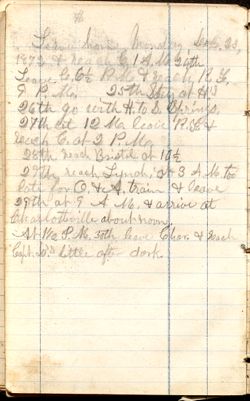 Leave home Monday Sept. 23,
1872 & reach G. 1 A.M. 24th
Leave G. 6½ P.M. & reach K. T.
9 P.M. 25th Stay at H's
26th go with H. to S. Springs.
27th at 12 M. leave R. &
reach C. at 2 P.M.
28th reach Bristol at 10½
29th reach Lynch. at 3 A.M. too
late for O. & A. train & leave
29th at 9 A.M. & arrive at
Charlottsville about noon
At P.M. 30th leave Char. & reach
little after dark